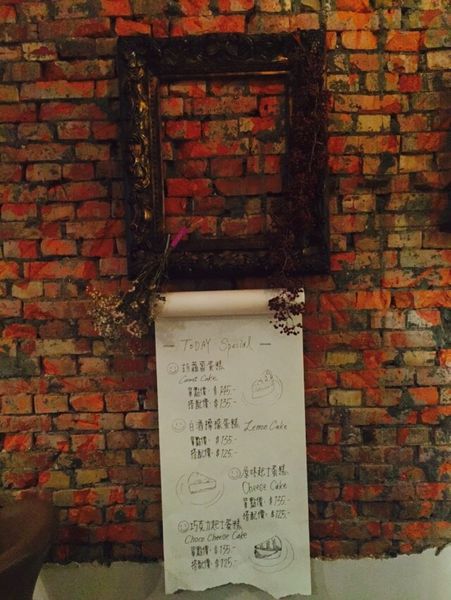 — TODAY Special —
胡蘿蔔蛋糕
Carrot Cake
單點價・$165.-
搭配價・$135.-
白酒檸檬蛋糕 Lemon Cake
單點價・$155.-
搭配價・$125.-
原味起士蛋糕
Cheese Cake
單點價・$155.-
搭配價・$125.-
巧克力起士蛋糕
Choco Cheese Cake
單點價・$155.-
搭配價・$125.-